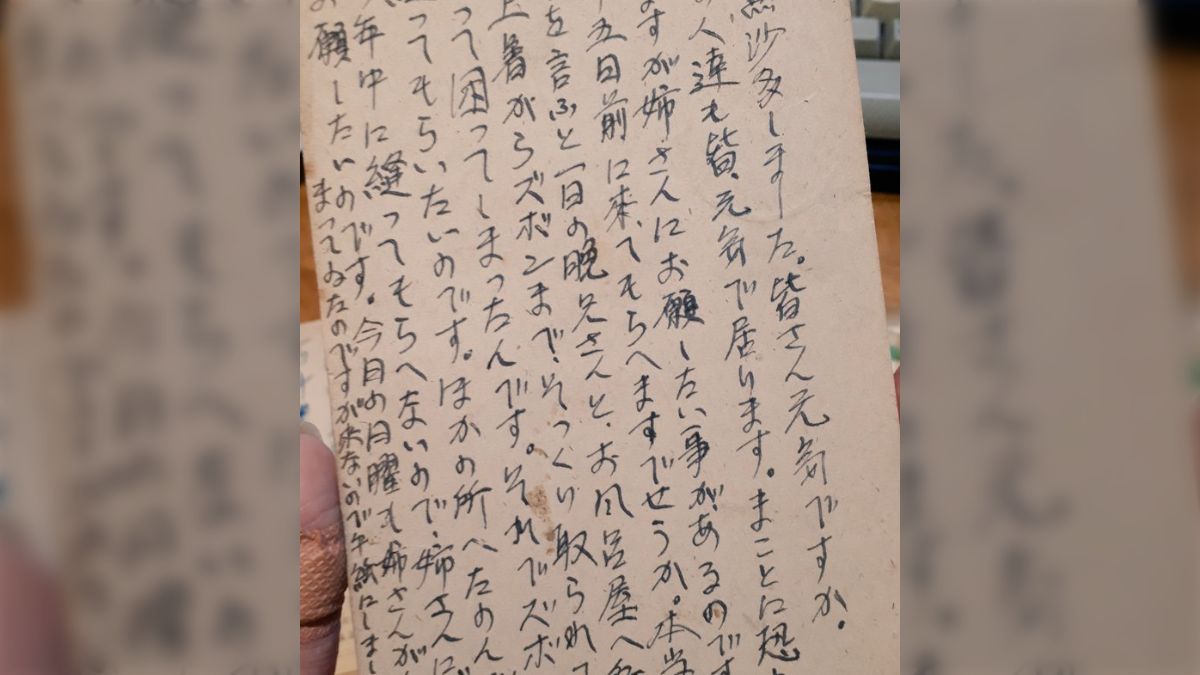 無沙多しました。皆さん元気ですか。
の人達も皆、元気で居ります。まことに恐
ますが姉さんにお願したい事があるのです
五日前に来てもらへますでせうか。本当
を言ふと一日の晩兄さんと、お風呂屋へ
上着からズボンまで、そっくり取られて
って困ってしまったんです。それでズボ
ってもらいたいのです。ほかの所へたのん
年中に縫ってもらへないので、姉さんに
お願したいのです。今日の日曜も姉さんが
まってゐたのですが来ないので手紙にしまし